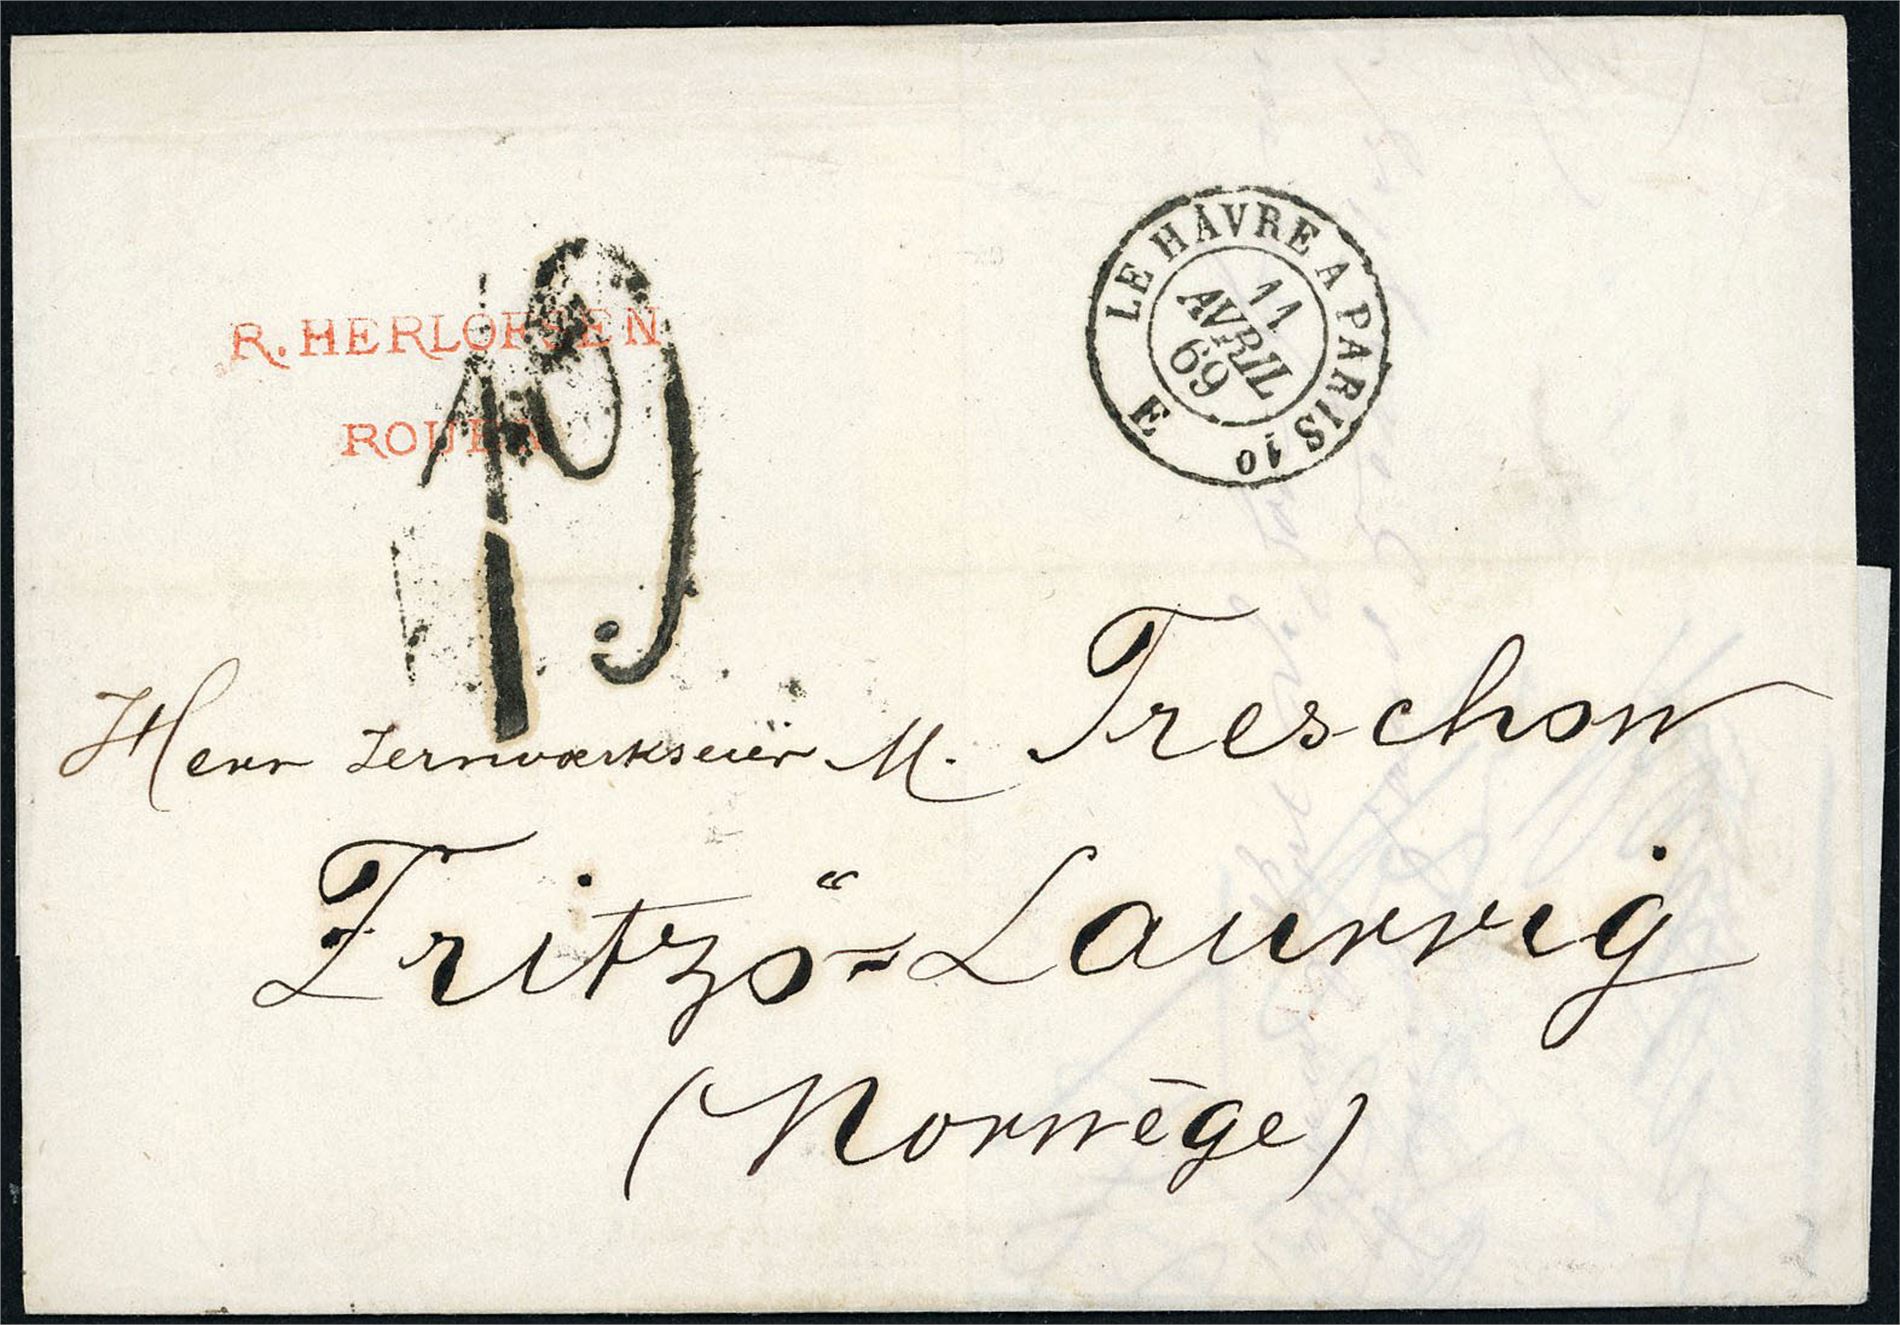 R. HERLOFSEN
ROUEN
19
LE HÂVRE A PARIS 10
11
AVRIL
69
E
Herr Jernværkseier M. Treschow
Fritzö = Laurvig
(Norwège)